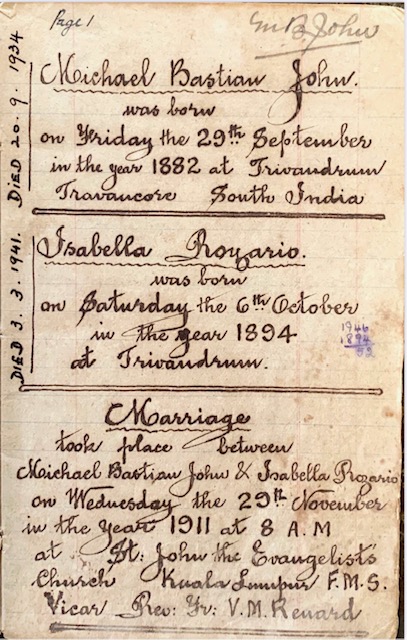 Page 1
M.B. John
Michael Bastian John.
was born
on Friday the 29th September
in the year 1882 at Trivandrum
Travancore South India
DIED 20. 9. 1934
Isabella Rozario.
was born
on Saturday the 6th October
in the year 1894
at Trivandrum.
DIED 3. 3. 1941.
1946
1894
52
Marriage
took place between
Michael Bastian John & Isabella Rozario
on Wednesday the 29th November
in the year 1911 at 8 A.M
at St: John the Evangelists'
Church Kuala Lumpur F.M.S.
Vicar Rev: Fr: V.M. Renard